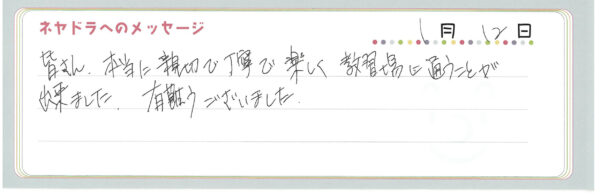 ネヤドラへのメッセージ
1月 12日
皆さん、本当に親切で丁寧で楽しく教習場に通うことが
出来ました。有難うございました。